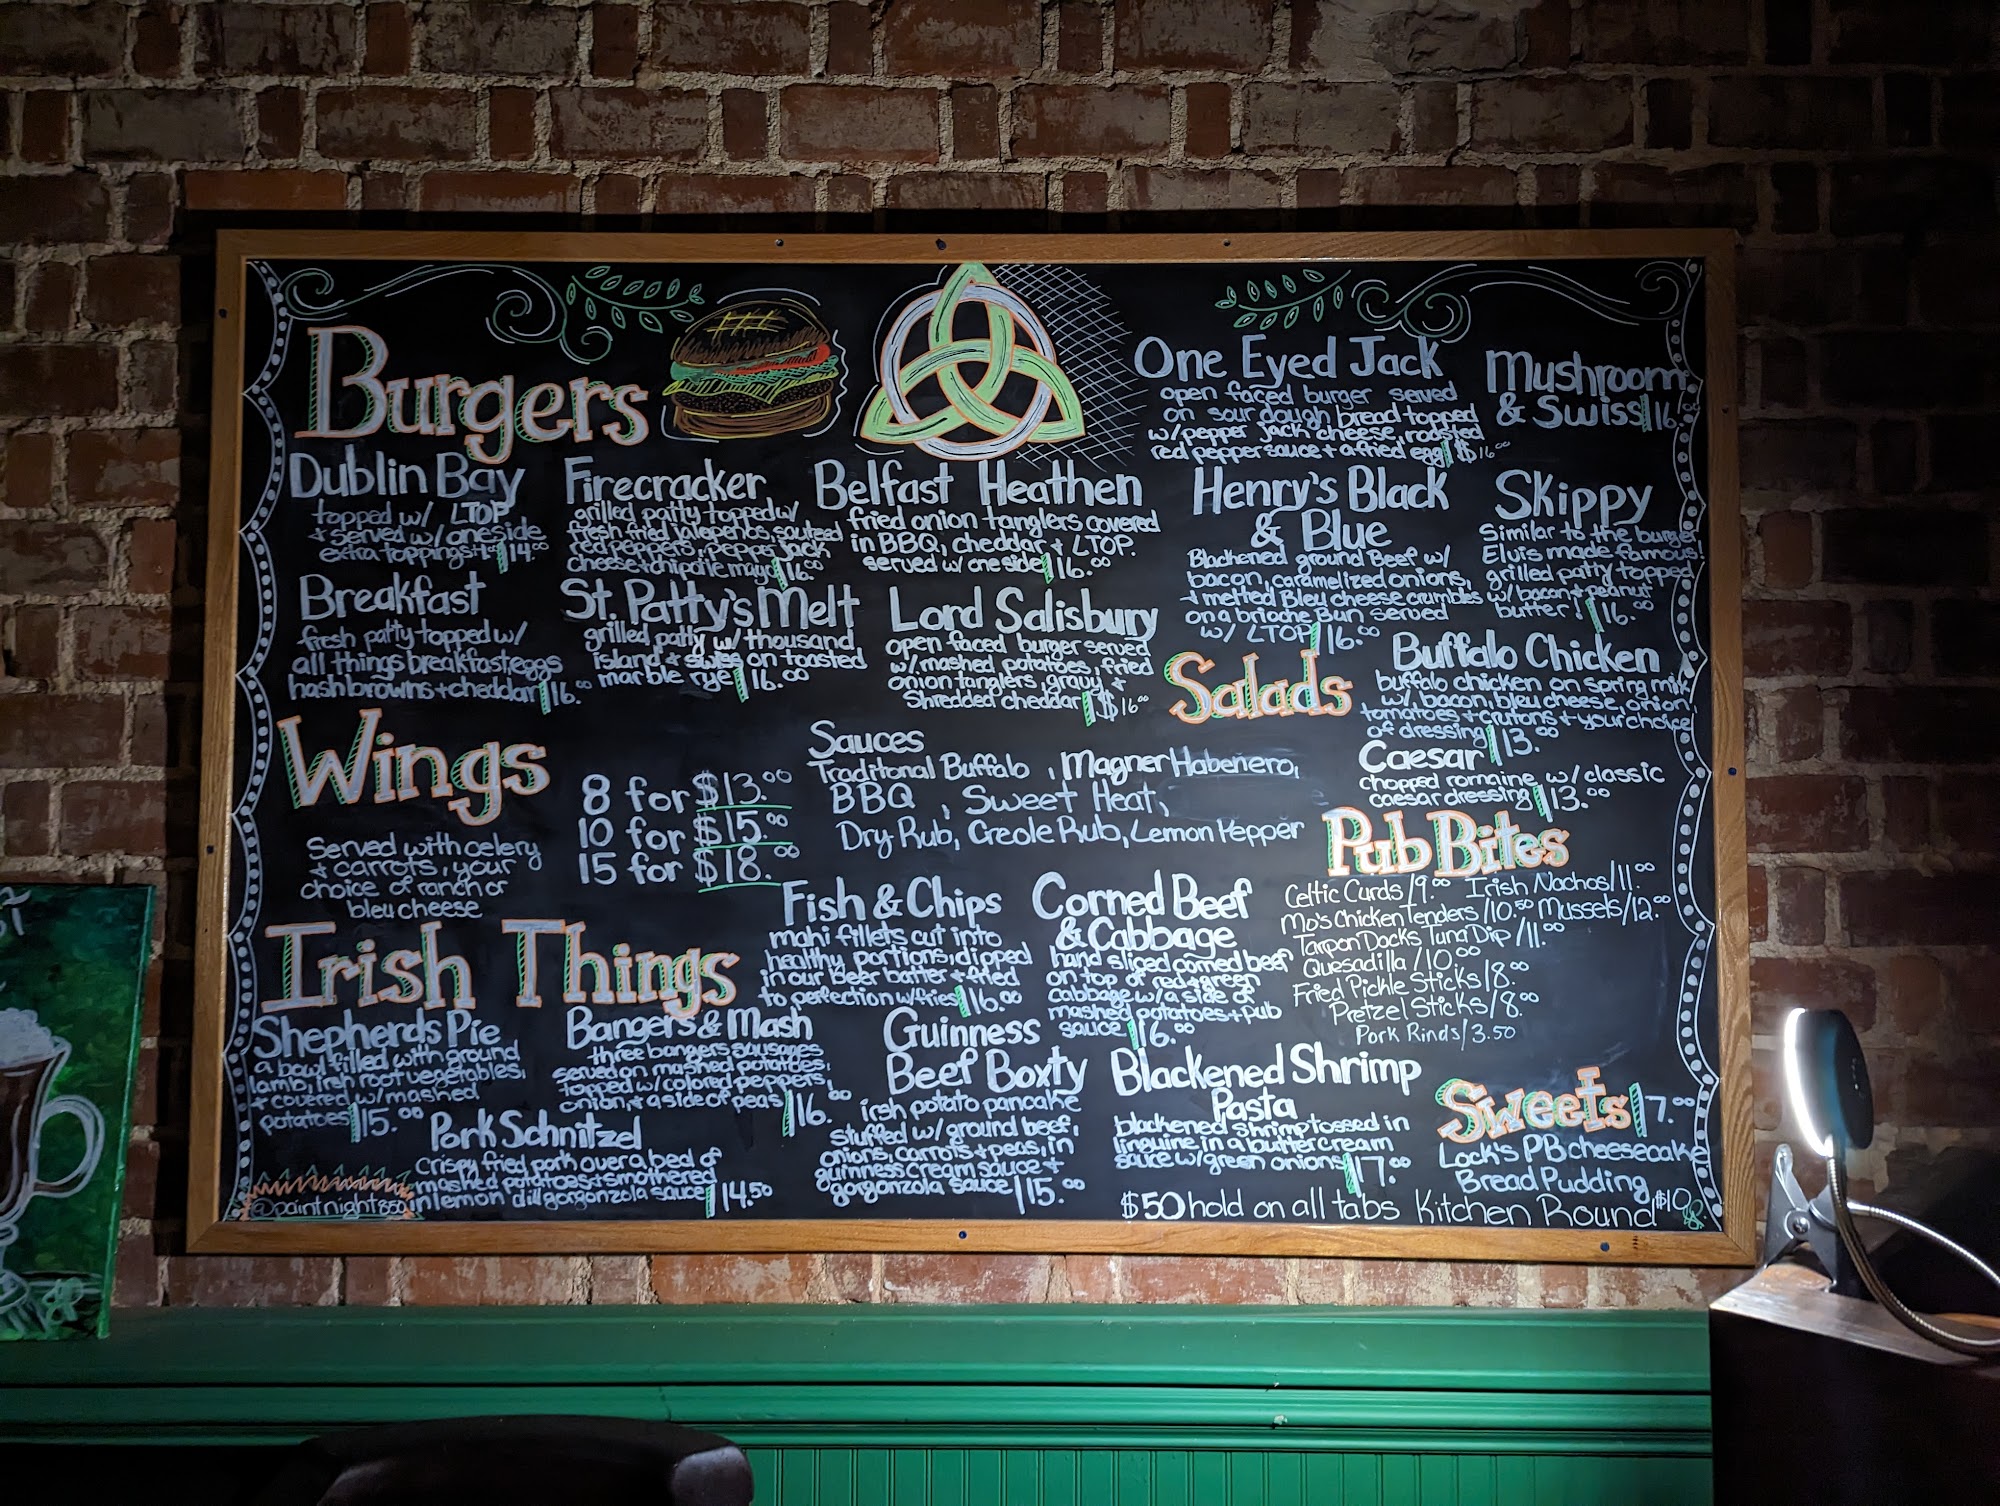 Burgers
Dublin Bay
topped w/ LTOP
+ served w/ one side
extra toppings+ $ 14.00
Firecracker
grilled patty topped w/
fresh fried jalepeños, sauteed
red peppers, pepper jack
cheese + chipotle mayo 16.00
Belfast Heathen
fried onion tanglers covered
in BBQ, cheddar + LTOP.
served w/ one side 16.00
One Eyed Jack
open faced burger served
on sour dough bread topped
w/ pepper jack cheese, roasted
red pepper sauce + a fried egg $16.00
Mushroom
& Swiss 16.00
Breakfast
fresh patty topped w/
all things breakfast: eggs
hashbrowns + cheddar 16.00
St. Patty's Melt
grilled patty w/ thousand
island + swiss on toasted
marble rye 16.00
Lord Salisbury
open faced burger served
w/ mashed potatoes, fried
onion tanglers, gravy +
Shredded cheddar $16.00
Henry's Black
& Blue
Blackened ground Beef w/
bacon, caramelized onions,
+ melted Bleu cheese crumbles
on a brioche Bun served
w/ LTOP 16.00
Skippy
Similar to the burger
Elvis made famous!
grilled patty topped
w/ bacon + peanut
butter! 16.00
Wings
Served with celery
+ carrots, your
choice of ranch or
bleu cheese
8 for $13.00
10 for $15.00
15 for $18.00
Sauces
Traditonal Buffalo , Magner Habeñero,
BBQ , Sweet Heat,
Dry Rub, Creole Rub, Lemon Pepper
Salads
Buffalo Chicken
buffalo chicken on spring mix
w/, bacon, bleu cheese, onion,
tomatoes + crutons + your choice
of dressing 13.00
Caesar
chopped romaine w/ classic
caesar dressing 13.00
Irish Things
Shepherds Pie
a bowl filled with ground
lamb, irsh root vegetables,
+ covered w/ mashed
potatoes 15.00
Bangers & Mash
three bangers sausages
served on mashed potatoes,
topped w/ colored peppers,
onion, + a side of peas 16.00
Fish & Chips
mahi fillets cut into
healthy portions, dipped
in our beer batter + fried
to perfection w/ fries 16.00
Corned Beef
& Cabbage
hand sliced corned beef
on top of red + green
cabbage w/ a side of
mashed potatoes + pub
sauce 16.00
Pork Schnitzel
Crispy fried pork over a bed of
mashed potatoes + smothered
in lemon dill gorgonzola sauce 14.50
Guinness
Beef Boxty
irsh potato pancake
stuffed w/ ground beef,
onions, carrots + peas, in
guinness cream sauce +
gorgonzola sauce 15.00
Blackened Shrimp
Pasta
blackened shrimp tossed in
linguine in a butter cream
sauce w/ green onions 17.00
Pub Bites
Celtic Curds / 9.00 Irish Nachos / 11.00
Mo's Chicken Tenders / 10.50 Mussels / 12.00
Tarpon Docks Tuna Dip / 11.00
Quesadilla / 10.00
Fried Pickle Sticks / 8.00
Pretzel Sticks / 8.00
Pork Rinds / 3.50
Sweets 7.00
Lock's PB cheesecake
Bread Pudding
$50 hold on all tabs Kitchen Round $10.00
@paintnight850